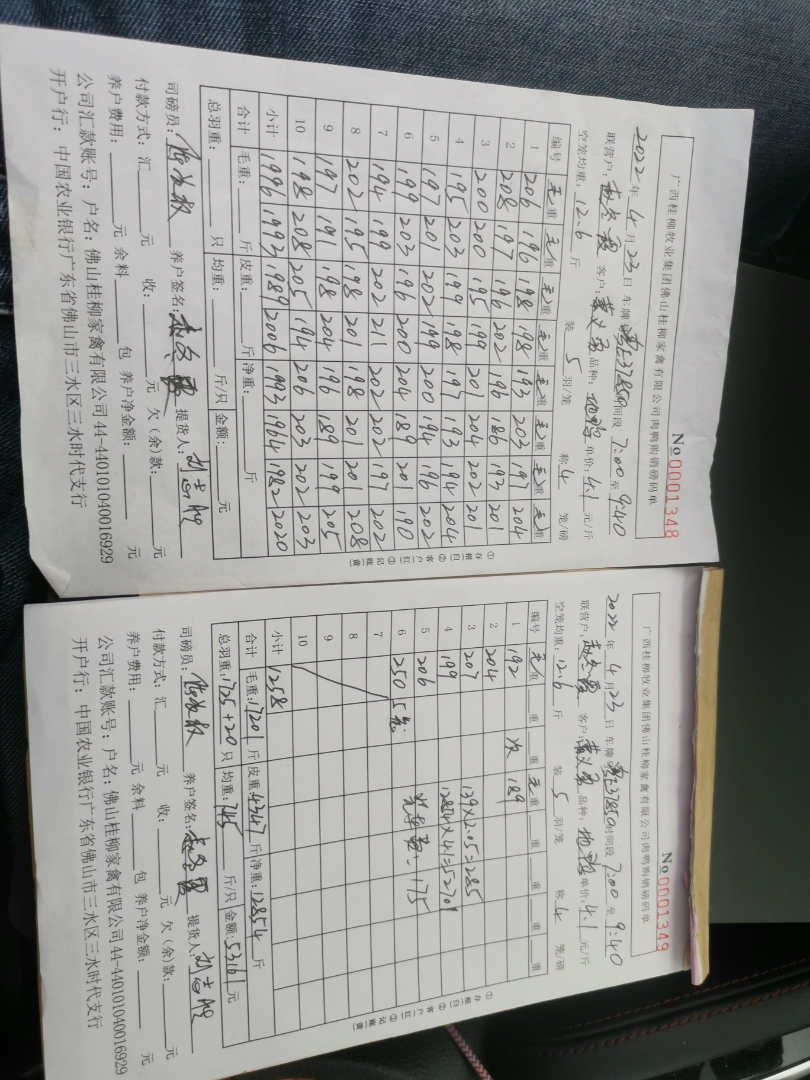 广西桂柳牧业集团佛山桂柳家禽有限公司肉鸭购销磅码单
No 0001348
2022 年 4 月 23 日 车牌 37850 时间段 7:00 至 9:40
联营户: 客户: 品种: 单价: 4.1 元/斤
空笼均重: 12.6 斤 装 5 羽/笼 称 4 笼/磅
编号 毛重 毛重 毛重 毛重 毛重 毛重 毛重 毛重
1 206 196 198 198 193 203 197 204
2 208 197 196 202 196 186 193 201
3 200 200 195 199 201 204 202 201
4 195 203 199 198 197 193 194 204
5 197 201 202 199 200 194 196 202
6 199 203 196 200 204 189 201 190
7 194 199 202 211 202 202 197 202
8 202 195 198 201 198 201 201 208
9 197 191 198 204 196 189 199 205
10 198 208 205 194 206 203 202 203
小计 1996 1993 1989 2006 1993 1964 1982 2020
合计 毛重: 斤 皮重: 斤 净重: 斤
总羽重: 只 均重: 斤/只 金额: 元
①存根(白) ②客户(红) ③记账(黄)
司磅员: 养户签名: 提货人:
付款方式:汇 元 收: 元 欠(余)款: 元
养户费用: 元 余料 包 养户净金额: 元
公司汇款账号:户名:佛山桂柳家禽有限公司 44-440101040016929
开户行:中国农业银行广东省佛山市三水区三水时代支行
广西桂柳牧业集团佛山桂柳家禽有限公司肉鸭购销磅码单
No 0001349
2022 年 4 月 23 日 车牌 37850 时间段 7:00 至 9:40
联营户: 客户: 品种: 单价: 4.1 元/斤
空笼均重: 12.6 斤 装 5 羽/笼 称 4 笼/磅
编号 毛重 重 毛重 重 重 重 重 重
1 192 次 189
2 204
3 207 139×2.05=285
4 199 12854×4.1=52701
5 206 费: 175
6 250 5笼
7
8
9
10
小计 1258
合计 毛重: 17201 斤 皮重: 4347 斤 净重: 12854 斤
总羽重: 1725+20 只 均重: 7.45 斤/只 金额: 53161 元
①存根(白) ②客户(红) ③记账(黄)
司磅员: 养户签名: 提货人:
付款方式:汇 元 收: 元 欠(余)款: 元
养户费用: 元 余料 包 养户净金额: 元
公司汇款账号:户名:佛山桂柳家禽有限公司 44-440101040016929
开户行:中国农业银行广东省佛山市三水区三水时代支行